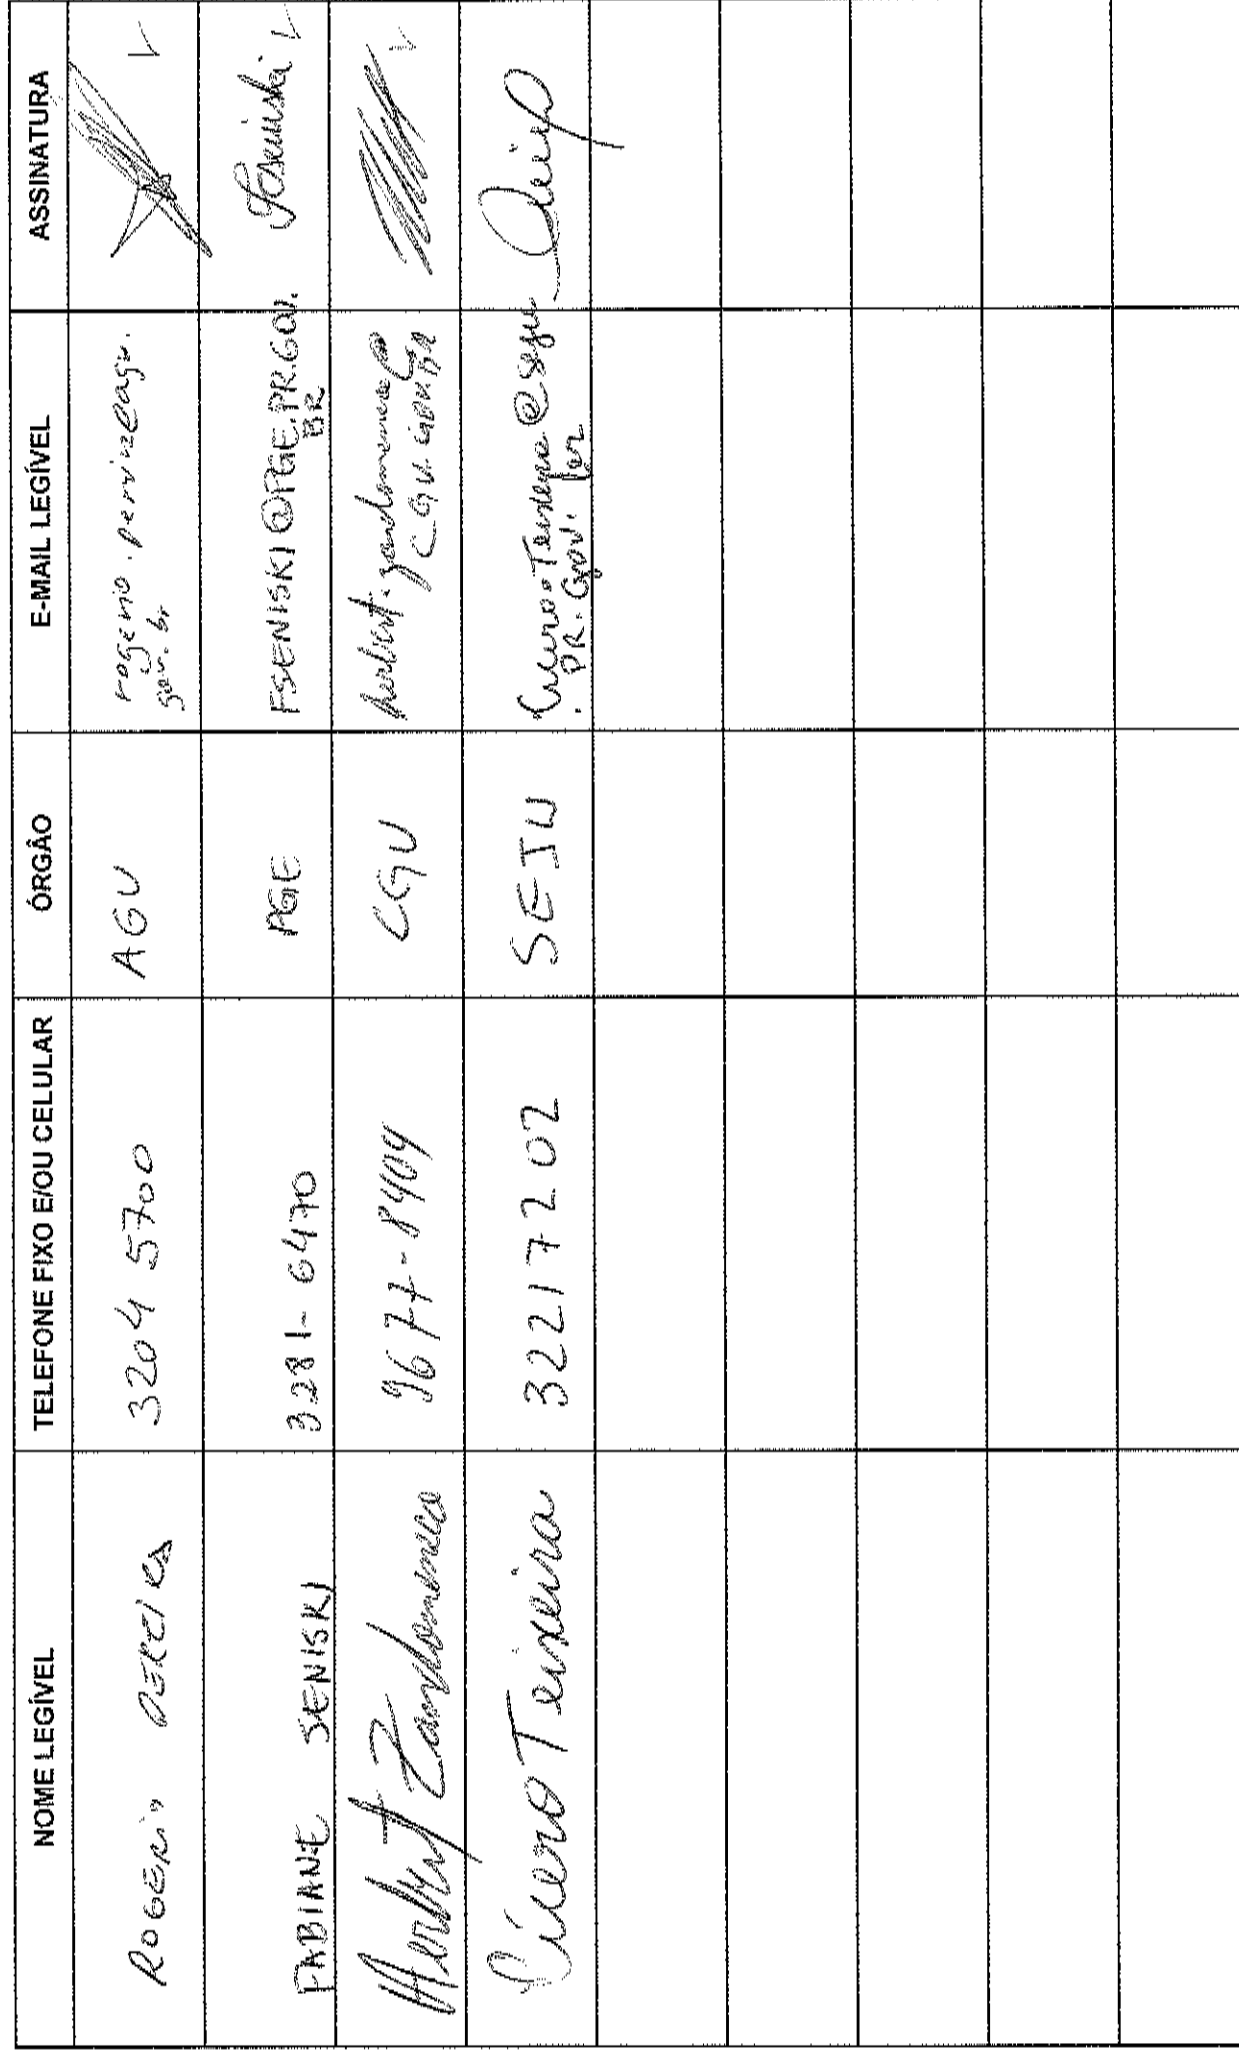 NOME LEGÍVEL TELEFONE FIXO E/OU CELULAR ÓRGÃO E-MAIL LEGÍVEL ASSINATURA
ROGERIO 3204 5700 AGU rogerio.
gov.br
FABIANE SENISKI 3281-6470 PGE FSENISKI@PGE.PR.GOV. Fseniski
BR
Herbert 9677-8404 CGU herbert.
CGU.GOV.BR
Cícero Teixeira 32217202 SEJU Cicero Teixeira@seju
.PR.Gov.br